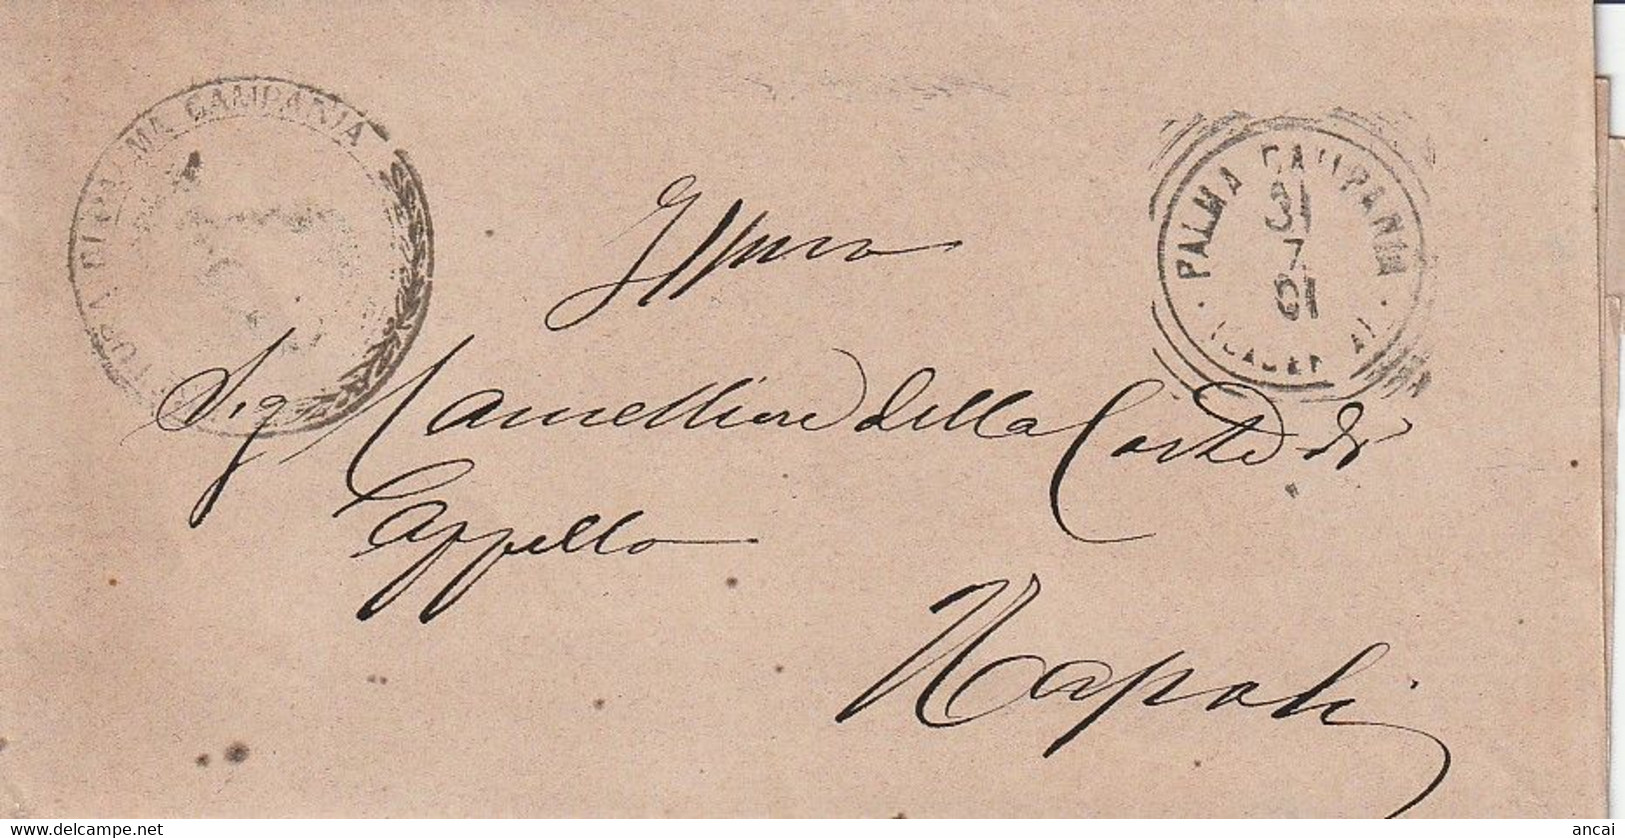 DI PALMA CAMPANIA
PALMA CAMPANIA
31
7
01
Sig Cancelliere della Corte di
Appello
Napoli
www.delcampe.net
ancai